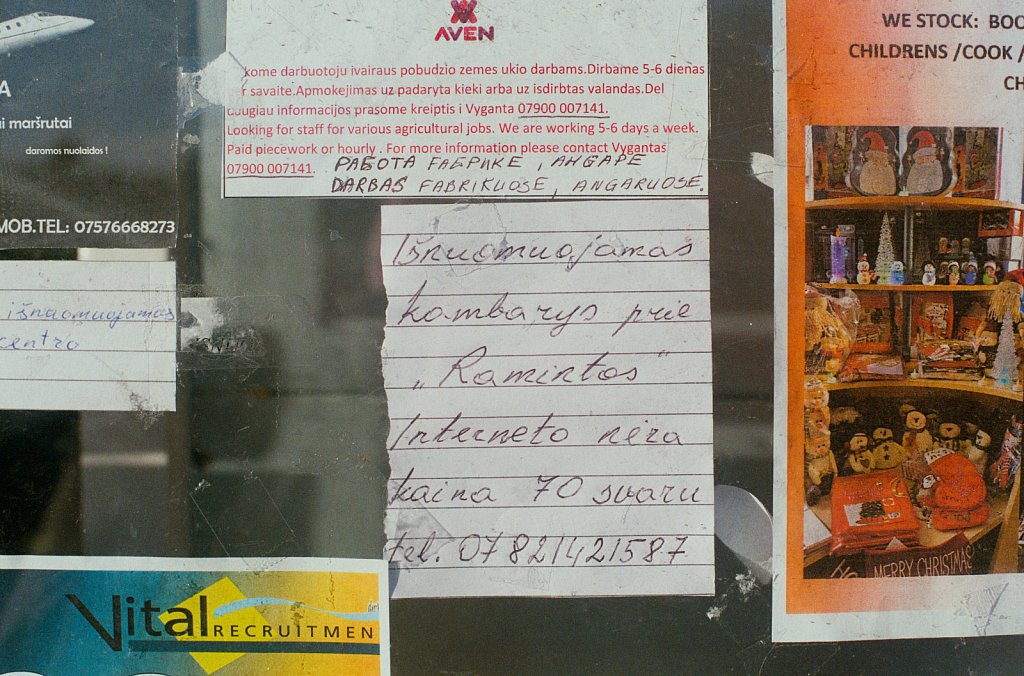 A
i maršrutai
daromos nuolaidos !
MOB.TEL: 07576668273
išnuomuojamas
centro
AVEN
kome darbuotoju ivairaus pobudzio zemes ukio darbams.Dirbame 5-6 dienas
r savaite.Apmokejimas uz padaryta kieki arba uz isdirbtas valandas.Del
daugiau informacijos prasome kreiptis i Vyganta 07900 007141.
Looking for staff for various agricultural jobs. We are working 5-6 days a week.
Paid piecework or hourly . For more information please contact Vygantas
07900 007141. РАБОТА FАБРИКЕ , АНГАРЕ
DARBAS FABRIKUOSE, ANGARUOSE.
Išnuomuojamas
kambarys prie
„Ramintos"
Interneto nėra
kaina 70 svaru
tel. 07821421587
Vital RECRUITMEN
WE STOCK: BOO
CHILDRENS /COOK /
CH
HO
MERRY CHRISTMAS